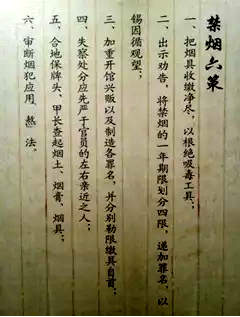 禁烟六策
一、把烟具收缴净尽，以根绝吸毒工具；
二、出示劝告，将禁烟的一年期限划分四限，递加罪名，以
锡因循观望；
三、加重开馆兴贩以及制造各罪名，并分别勒限缴具自首；
四、失察处分应先严于官员的左右亲近之人；
五、合地保牌头、甲长查起烟土、烟膏、烟具；
六、审断烟犯应用 熬 法。